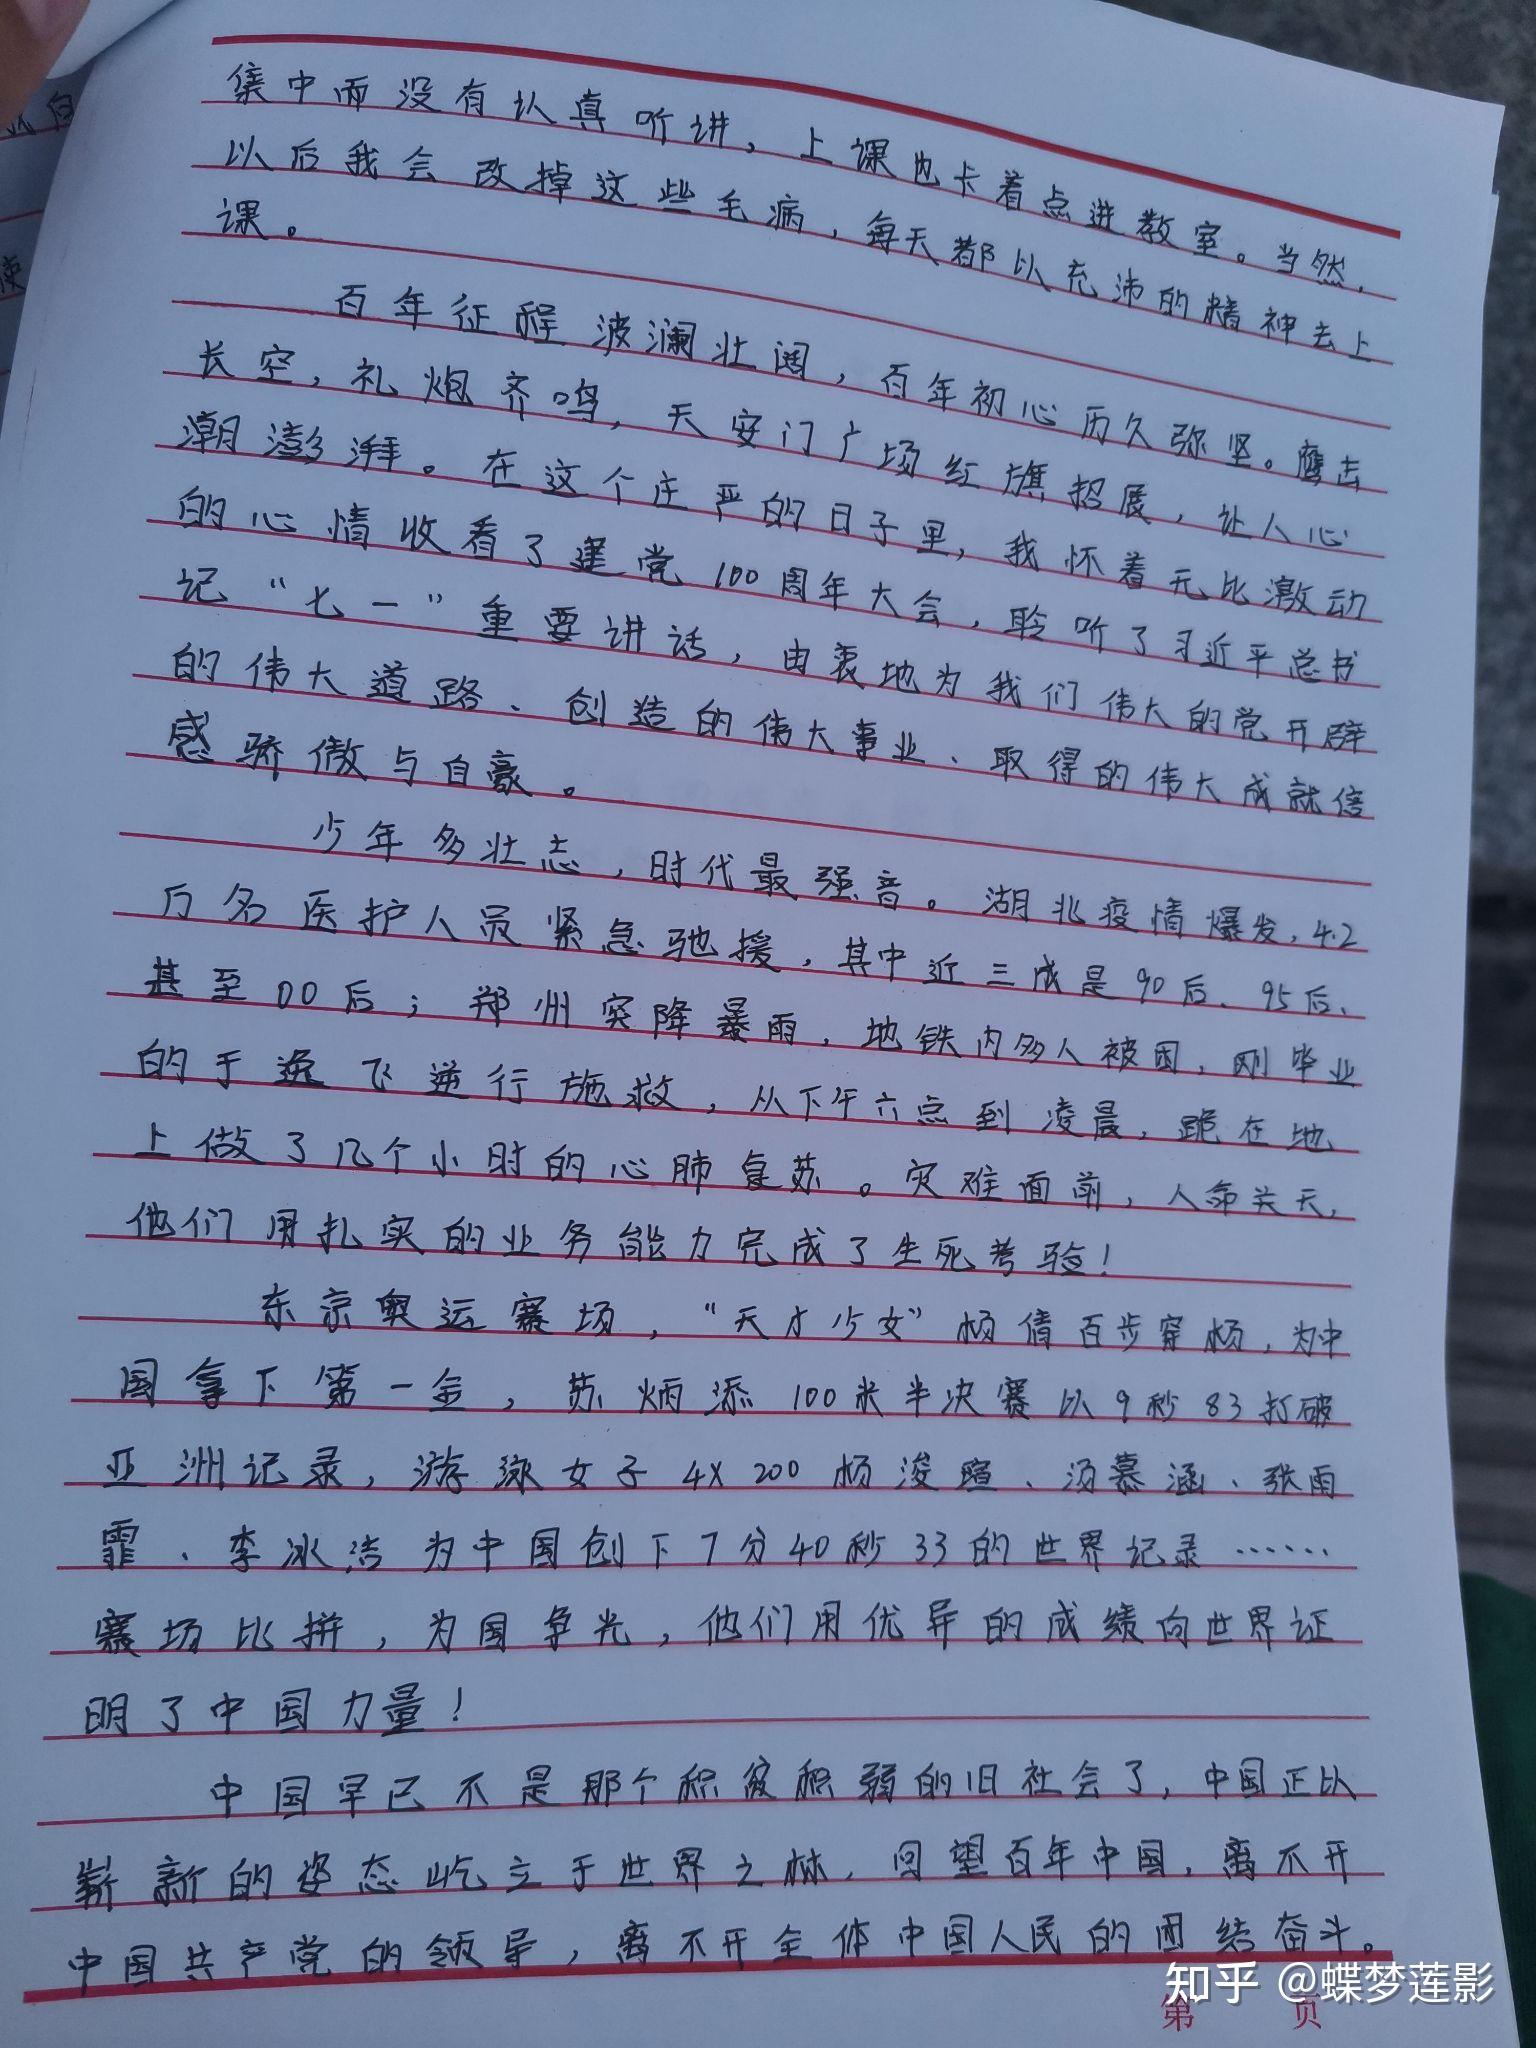 集中而没有认真听讲，上课也卡着点进教室。当然，
以后我会改掉这些毛病，每天都以充沛的精神去上
课。
百年征程波澜壮阔，百年初心历久弥坚。鹰击
长空，礼炮齐鸣，天安门广场红旗招展，让人心
潮澎湃。在这个庄严的日子里，我怀着无比激动
的心情收看了建党100周年大会，聆听了习近平总书
记“七一”重要讲话，由衷地为我们伟大的党开辟
的伟大道路、创造的伟大事业、取得的伟大成就倍
感骄傲与自豪。
少年多壮志，时代最强音。湖北疫情爆发，4.2
万名医护人员紧急驰援，其中近三成是90后、95后、
甚至00后；郑州突降暴雨，地铁内多人被困，刚毕业
的于逸飞逆行施救，从下午六点到凌晨，跪在地
上做了几个小时的心肺复苏。灾难面前，人命关天，
他们用扎实的业务能力完成了生死考验！
东京奥运赛场，“天才少女”杨倩百步穿杨，为中
国拿下第一金，苏炳添100米半决赛以9秒83打破
亚洲记录，游泳女子4X200杨浚瑄、汤慕涵、张雨
霏、李冰洁为中国创下7分40秒33的世界记录……
赛场比拼，为国争光，他们用优异的成绩向世界证
明了中国力量！
中国早已不是那个积贫积弱的旧社会了，中国正以
崭新的姿态屹立于世界之林，回望百年中国，离不开
中国共产党的领导，离不开全体中国人民的团结奋斗。
知乎 @蝶梦莲影
第 页